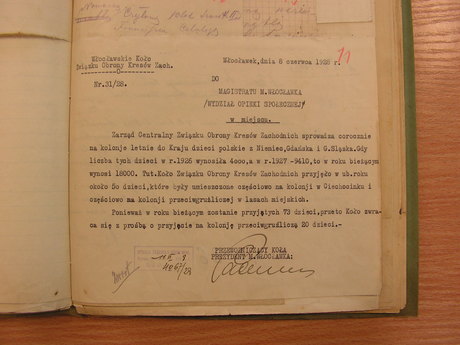 Włocławskie Koło
Związku Obrony Kresów Zach.
Nr.31/28.
Włocławek,dnia 8 czerwca 1928 r.
11
DO
MAGISTRATU M.WŁOCŁAWKA
/WYDZIAŁ OPIEKI SPOŁECZNEJ/
w miejscu.
Zarząd Centralny Związku Obrony Kresów Zachodnich sprowadza corocznie
na kolonje letnie do Kraju dzieci polskie z Niemiec,Gdańska i G.Śląska.Gdy
liczba tych dzieci w r.1926 wynosiła 4ooo,a w r.1927 -9410,to w roku bieżącym
wynosi 18000. Tut.Koło Związku Obrony Kresów Zachodnich przyjęło w ub.roku
około 5o dzieci,które były umieszczone częściowo na kolonji w Ciechocinku i
częściowo na kolonji przeciwgruźliczej w lasach miejskich.
Ponieważ w roku bieżącym zostanie przyjętych 73 dzieci,przeto Koło zwra-
ca się z prośbą o przyjęcie na kolonję przeciwgruźliczą 20 dzieci.-
PRZEWODNICZĄCY KOŁA
PREZYDENT M.WŁOCŁAWKA: